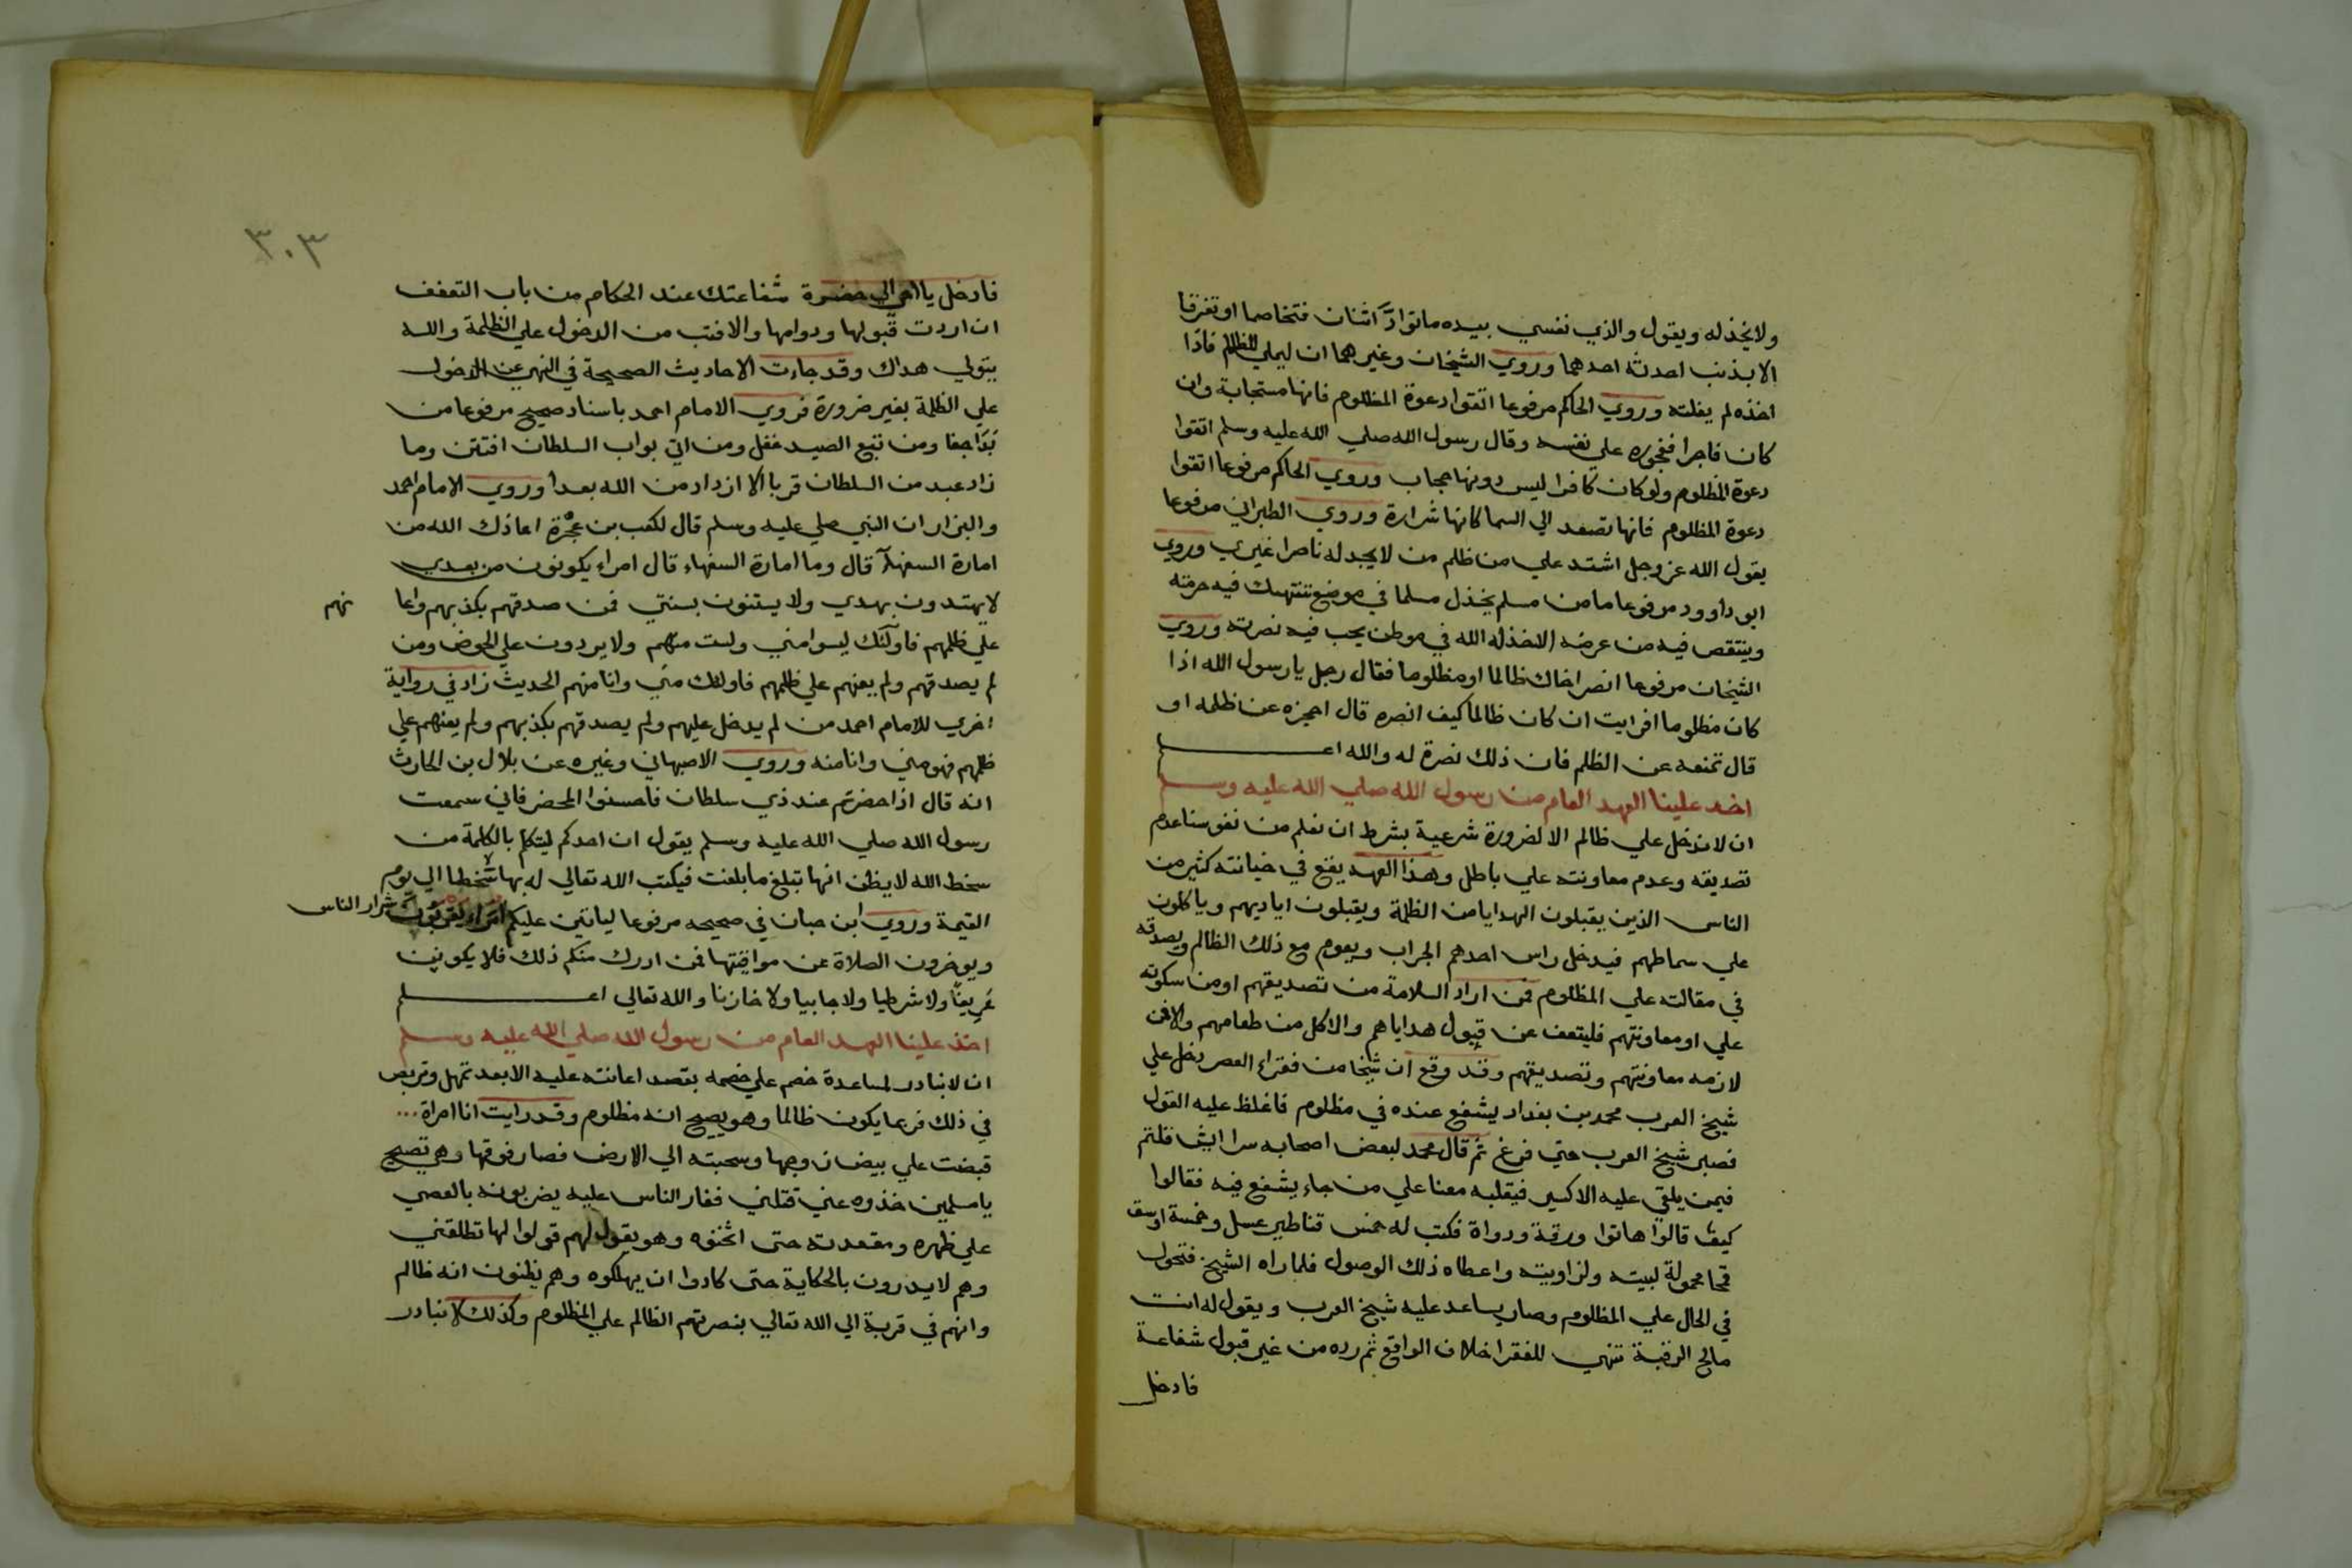 ولا يخذله ويقول والذي نفسي بيده ما تواد اثنان فتخاصما او تفرقا
الا بذنب احدثه احدهما وروي الشيخان وغيرهما ان ليملي للظالم فاذا
اخذه لم يفلته وروي الحاكم مرفوعا اتقوا دعوة المظلوم فانها مستجابة وان
كان فاجرا ففجوره على نفسه وقال رسول الله صلي الله عليه وسلم اتقوا
دعوة المظلوم ولو كان كافرا ليس دونها حجاب وروي الحاكم مرفوعا اتقوا
دعوة المظلوم فانها تصعد الي السما كانها شرارة وروي الطبراني مرفوعا
يقول الله عز وجل اشتد علي من ظلم من لا يجد له ناصرا غيري وروي
ابو داوود مرفوعا ما من مسلم يخذل مسلما في موضع تنتهك فيه حرمته
وينتقص فيه من عرضه الا خذله الله في موطن يحب فيه نصرته وروي
الشيخان مرفوعا انصر اخاك ظالما او مظلوما فقال رجل يا رسول الله اذا
كان مظلوما افرايت ان كان ظالما كيف انصره قال احجزه عن ظلمه او
قال تمنعه عن الظلم فان ذلك نصرة له والله اعلم
اخذ علينا العهد العام من رسول الله صلي الله عليه وسلم
ان لا ندخل علي ظالم الا لضرورة شرعية بشرط ان نعلم من نفوسنا عدم
تصديقه وعدم معاونته علي باطل وهذا العهد يقع في خيانته كثير من
الناس الذين يقبلون الهدايا من الظلمة ويقبلون اياديهم وياكلون
علي سماطهم فيدخل راس احدهم الجراب ويعوم مع ذلك الظالم ويصدقه
في مقالته علي المظلوم فمن اراد السلامة من تصديقهم او من سكوته
علي او معاونتهم فليتعف عن قبول هداياهم والاكل من طعامهم والا فمن
لازمه معاونتهم وتصديقهم وقد وقع ان شيخا من فقراء العصر دخل علي
شيخ العرب محمد بن بغداد يشفع عنده في مظلوم فاغلظ عليه القول
فصبر شيخ العرب حتي فرغ ثم قال محمد لبعض اصحابه سرا ايش قلتم
فيمن يلقي عليه الاكسير فيقلبه معنا علي من جاء يشفع فيه فقالوا
كيف قالوا هاتوا ورقة ودواة فكتب له خمس قناطير عسل وخمسة اوسق
قمحا محمولة لبيته ولزاويته واعطاه ذلك الوصول فلما راه الشيخ فتحول
في الحال علي المظلوم وصار يساعد عليه شيخ العرب ويقول له انت
مالح الرقبة تنهي للفقرا خلاف الواقع ثم رده من غير قبول شفاعة
فادخل
٣٠٣
فادخل يا اخي الي حضرة شفاعتك عند الحكام من باب التعفف
ان اردت قبولها ودوامها والا فتب من الدخول علي الظلمة والله
يتولي هداك وقد جاءت الاحاديث الصحيحة في النهي عن الدخول
علي الظلمة بغير ضرورة فروي الامام احمد باسناد صحيح مرفوعا من
بَدَا جفا ومن تبع الصيد غفل ومن اتي بواب السلطان افتتن وما
زاد عبد من السلطان قربا الا ازداد من الله بعدا وروي الامام احمد
والبزار ان النبي صلي عليه وسلم قال لكعب بن عُجْرة اعاذك الله من
امارة السفهآء قال وما امارة السفهاء قال امراء يكونون من بعدي
لا يهتدون بهدي ولا يستنون بسنتي فمن صدقهم بكذبهم واعا
نهم
علي ظلمهم فاولئك ليسوا مني ولست منهم ولا يردون علي الحوض ومن
لم يصدقهم ولم يعنهم علي ظلمهم فاولئك مني وانا منهم الحديث زاد في رواية
اخري للامام احمد من لم يدخل عليهم ولم يصدقهم بكذبهم ولم يعنهم علي
ظلمهم فهو مني وانا منه وروي الاصبهاني وغيره عن بلال بن الحارث
انه قال اذا حضرتم عند ذي سلطان فاحسنوا المحضر فاني سمعت
رسول الله صلي الله عليه وسلم يقول ان احدكم ليتكلم بالكلمة من
سخط الله لا يظن انها تبلغ ما بلغت فيكتب الله تعالي له بها سخطا الي يوم
القيمة وروي ابن حبان في صحيحه مرفوعا لياتين عليكم امراء يقربون شرار الناس
ويوخرون الصلاة عن مواقيتها فمن ادرك منكم ذلك فلا يكونن
عَرِيفًا ولا شرطيا ولا جابيا ولا خازنا والله تعالي اعلم
اخذ علينا العهد العام من رسول الله صلي الله عليه وسلم
ان لا نبادر لمساعدة خصم علي خصمه بقصد اعانته عليه الا بعد تمهل وتربص
في ذلك فربما يكون ظالما وهو يصيح انه مظلوم وقد رايت انا امراة ...
قبضت علي بيضان زوجها وسحبته الي الارض فصار فوقها وهي تصيح
يا مسلمين خذوه عني قتلني فغار الناس عليه يضربونه بالعصي
علي ظهره ومقعدته حتى اثخنوه وهو يقول لهم قولوا لها تطلقني
وهم لا يدرون بالحكاية حتى كادوا ان يهلكوه وهم يظنون انه ظالم
وانهم في قربة الي الله تعالي بنصرتهم الظالم علي المظلوم وكذلك لا نبادر